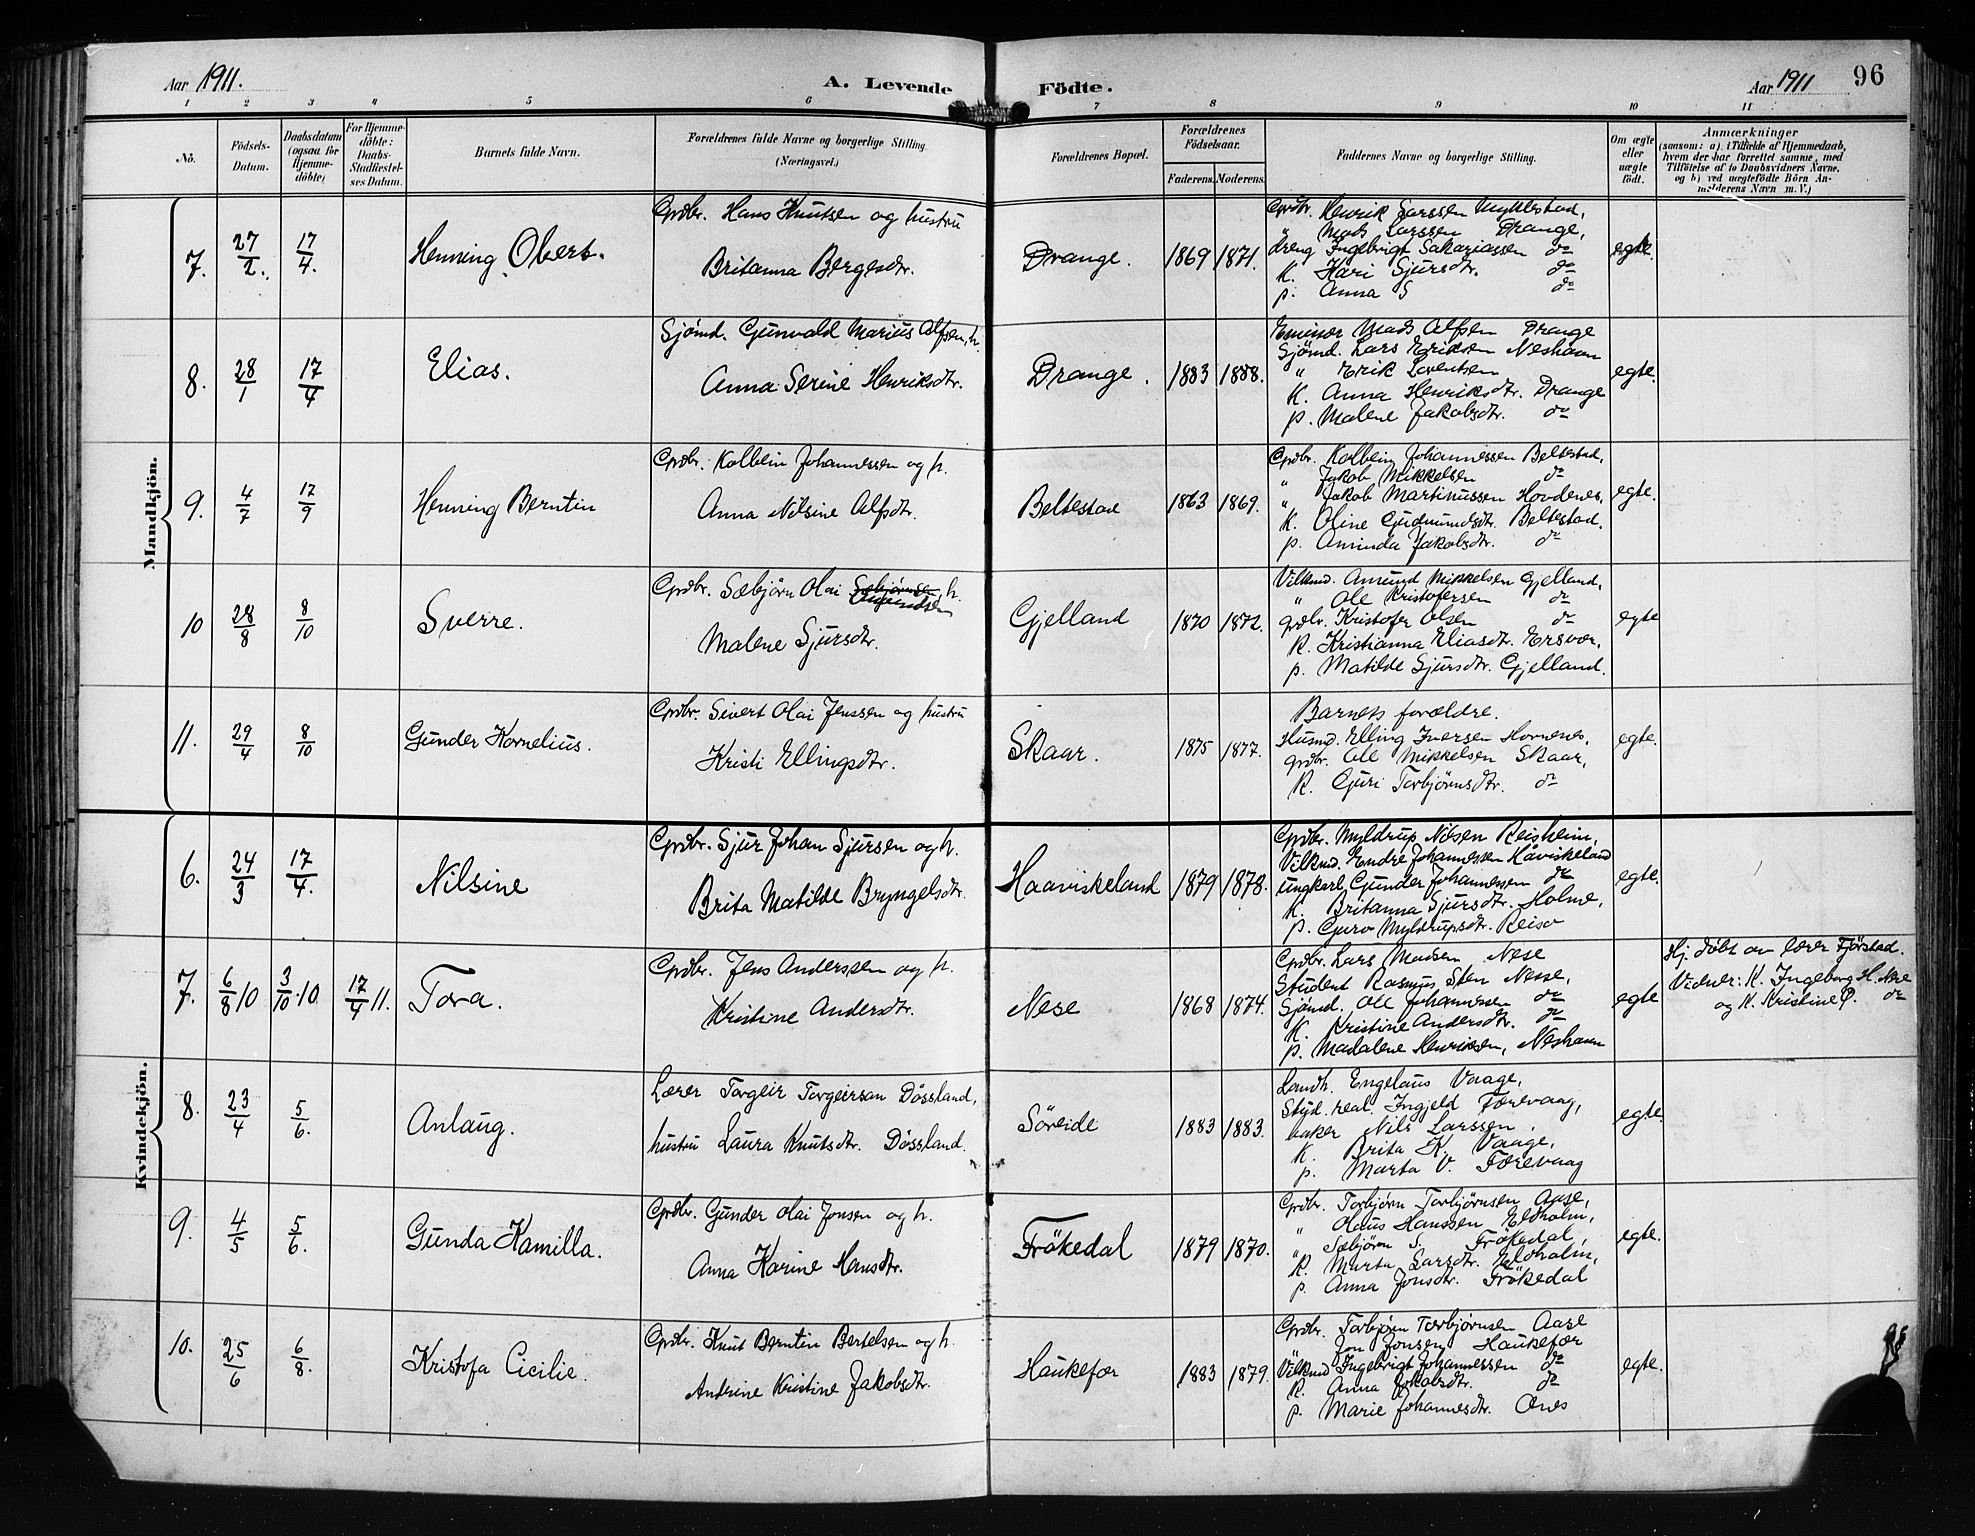 Aar 1911. A. Levende Födte. Aar 1911 96
1 2 3 4 5 6 7 8 9 10 11
Nô. Födsels-Datum. Daabsdatum (ogsaa for Hjemme-döbte) For Hjemme-döbte: Daabs-Stadfæstel-ses Datum. Barnets fulde Navn. Forældrenes fulde Navne og borgerlige Stilling. (Næringsvei.) Forældrenes Bopæl. Forældrenes Födselsaar. Faderens. Moderens. Faddernes Navne og borgerlige Stilling. Om ægte eller uægte födt. Anmærkninger (saasom: a) i Tilfælde af Hjemmedaab, hvem der har forrettet samme, med Tilföielse af to Daabsvidners Navne. og b) ved uægtefödte Börn An-melderens Navn m. V.)
Mandkjön.
7. 27/2. 17/4. Henning Obert. Grdbr. Hans Knutsen og hustru
Britanna Bergesdtr.
Drange. 1869 1871.
Grdbr. Henrik Larssen Myklestad,
" Mads Larssen Drange,
dreng Ingebrigt Sakariassen do
K. Kari Sjursdtr. do
p. Anna S do
egte.
8. 28/1 17/4 Elias. Sjömd. Gunvald Marius Alfsen, h.
Anna Serine Henriksdtr.
Drange. 1883 1888.
Mads Alfsen Drange
Sjömd. Lars Eriksen Neshavn
" Erik
K. Anna Henriksdtr. Drange
p. Malene Jakobsdtr. do
egte.
9. 4/7 17/9 Henning Berntin Grdbr. Kolbein Johannessen og h.
Anna Nilsine Alfsdtr.
Beltestad 1863 1869.
Grdbr. Kolbein Johannessen Beltestad,
" Jakob Mikkelsen do
" Jakob Martinussen Hovdenes,
K. Oline Gudmundsdtr. Beltestad.
p. Aminda Jakobsdtr. do
egte.
10 28/8 8/10 Sverre. Grdbr. Sæbjörn Olai Sæbjörnsen, h.
Amundsen
Malene Sjursdtr.
Gjelland 1870 1872.
Vilkmd. Amund Mikkelsen Gjelland,
" Ole Kristofersen do
grdbr. Kristofer Olsen do
K. Kristianna Eliasdtr. Ersvær,
p. Matilde Sjursdtr. Gjelland.
egte
11. 29/4 8/10 Gunder Kornelius. Grdbr. Sivert Olai Jenssen og hustru
Kristi Ellingsdtr.
Skaar. 1875 1877.
Barnets forældre.
Husmd. Elling Iversen Hovnenes,
grdbr. Ole Mikkelsen Skaar,
K. Guri Torbjörnsdtr. do
egte.
Kvindekjön.
6. 24/3 17/4. Nilsine Grdbr. Sjur Johan Sjursen og h.
Brita Matilde Bryngelsdtr.
Haaviskeland 1879 1878.
Grdbr. Myldrup Nilsen Reisheim,
Vilkmd. Endre Johannessen Håviskeland
ungkarl Gunder Johannessen do
K. Britanna Sjursdtr. Holme,
p. Guro Myldrupsdtr. Reisæ
egte.
7. 6/8 10 3/10 10 17/4 11. Tora. Grdbr. Jens Anderssen og h.
Kristine Andersdtr.
Nese 1868 1874.
Grdbr. Lars Madsen Nese
Student Rasmus Sten Nesse,
Sjömd. Ole Johannesen do
K. Kristine Andersdtr. do
p. Madalene Henriksen, Neshavn
egte
Hj. döbt av lærer Fjörstad.
Vidner: K. Ingeborg H. Nese
og K. Kristine P. do
8. 23/4 5/6. Anlaug. Lærer Torgeir Torgeirson Dössland,
hustru Laura Knutsdtr. Dössland.
Söreide 1883 1883.
Landh. Engelaus Vaage,
Stud. real. Ingjeld Færevaag,
baker Nils Larssen.
K. Brita K. Vaage,
p. Marta V. Færevaag
egte.
9. 4/5 5/6. Gunda Kamilla. Grdbr. Gunder Olai Jonsen og h.
Anna Karine Hansdtr.
Frökedal 1879 1870.
Grdbr. Torbjörn Torbjörnsen Aase,
" Olaus Hanssen Eldholm,
" Sæbjörn S. Frökedal,
K. Marta Larsdtr. Eldholm,
p. Anna Jonsdtr. Frökedal
egte.
10. 25/6 6/8. Kristofa Cicilie. Grdbr. Knut Berntin Bertelsen og h.
Andrine Kristine Jakobsdtr.
Haukefær 1883 1879.
Grdbr. Torbjörn Torbjörnsen Aase
Jon Jonsen Haukefær
Vilkmd Ingebrigt Johannessen do
K. Anna Jakobsdtr. do
p. Marie Johannesdtr. Ones
egte.